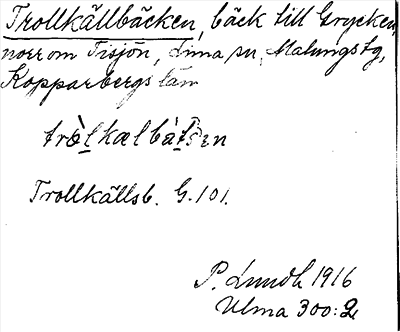 Trollkällbäcken, bäck till Grycken,
norr om Tisjön, Lima sn, Malungs tg,
Kopparbergs län
tròlkælbàtsen
Trollkällsb. G. 101.
P. Lundh 1916
Ulma 300:2